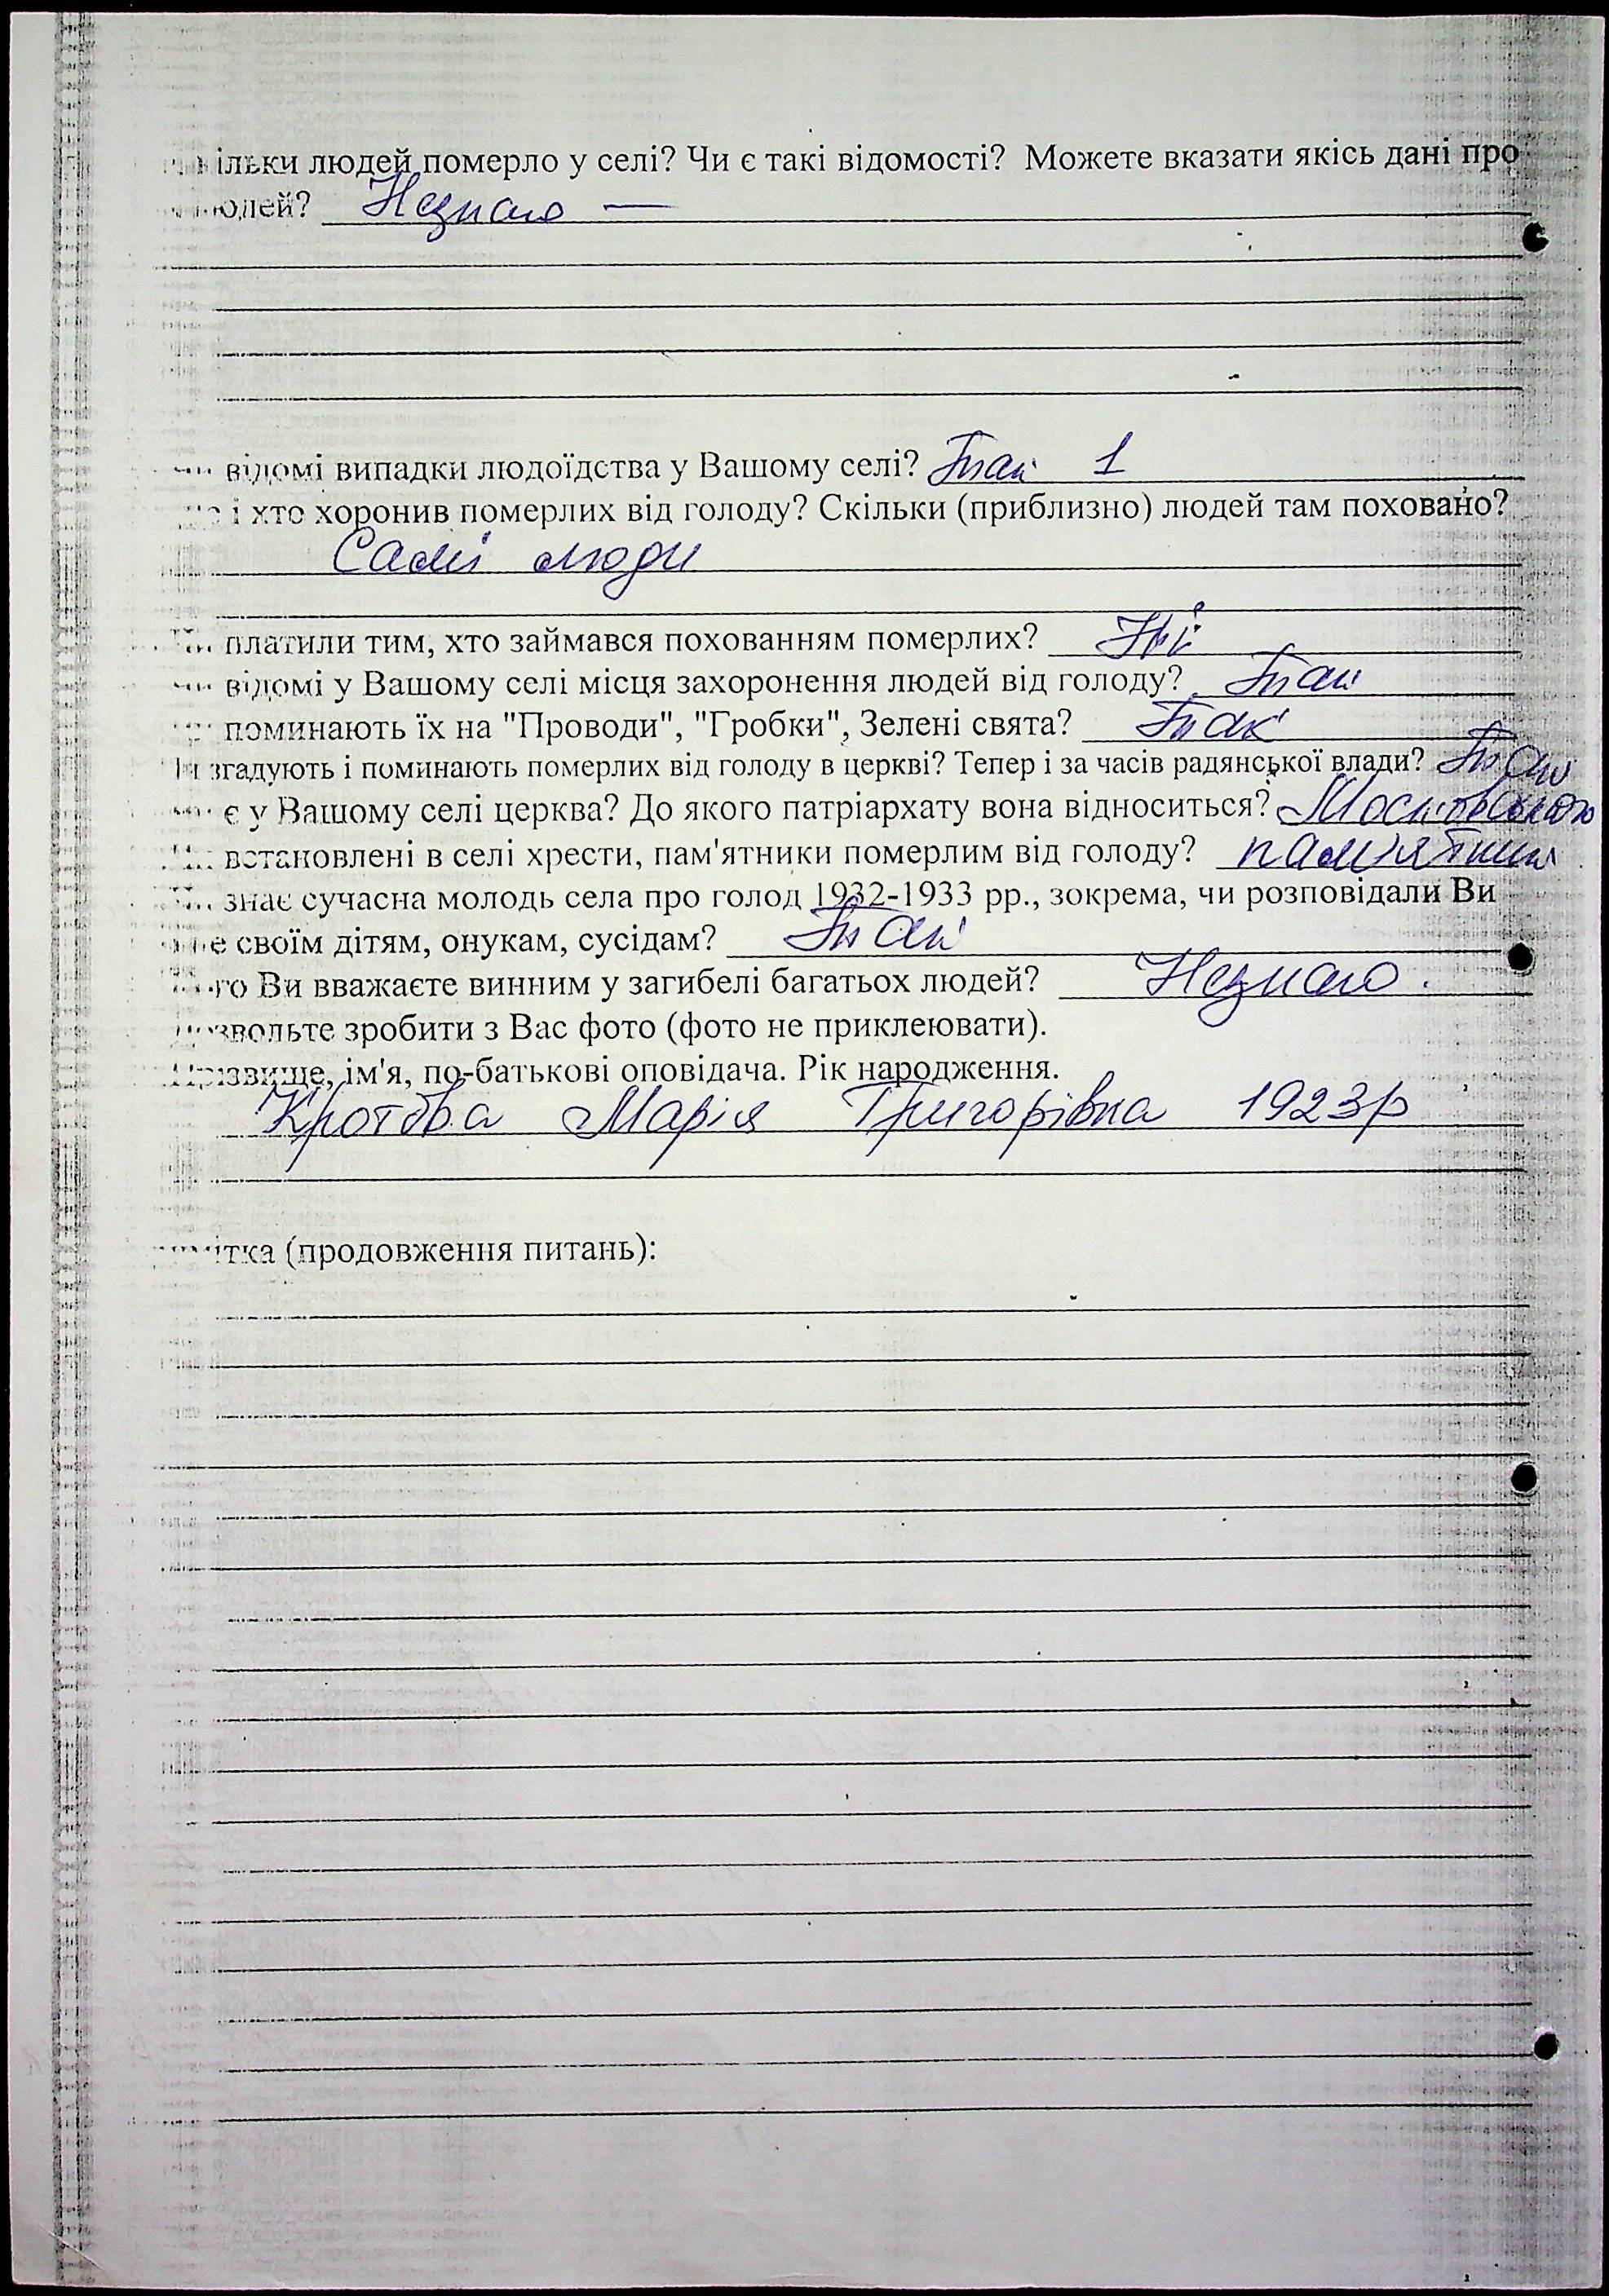 ільки людей померло у селі? Чи є такі відомості? Можете вказати якісь дані про
людей? Незнаю —
відомі випадки людоїдства у Вашому селі? Так 1
і хто хоронив померлих від голоду? Скільки (приблизно) людей там поховано?
Самі люди
платили тим, хто займався похованням померлих? Ні
відомі у Вашому селі місця захоронення людей від голоду? Так
поминають їх на "Проводи", "Гробки", Зелені свята? Так
згадують і поминають померлих від голоду в церкві? Тепер і за часів радянської влади? Так
є у Вашому селі церква? До якого патріархату вона відноситься? Московського
встановлені в селі хрести, пам'ятники померлим від голоду?
знає сучасна молодь села про голод 1932-1933 рр., зокрема, чи розповідали Ви
е своїм дітям, онукам, сусідам? Так
го Ви вважаєте винним у загибелі багатьох людей? Незнаю.
звольте зробити з Вас фото (фото не приклеювати).
різвище, ім'я, по-батькові оповідача. Рік народження.
Кротова Марія Григорівна 1923р
мітка (продовження питань):